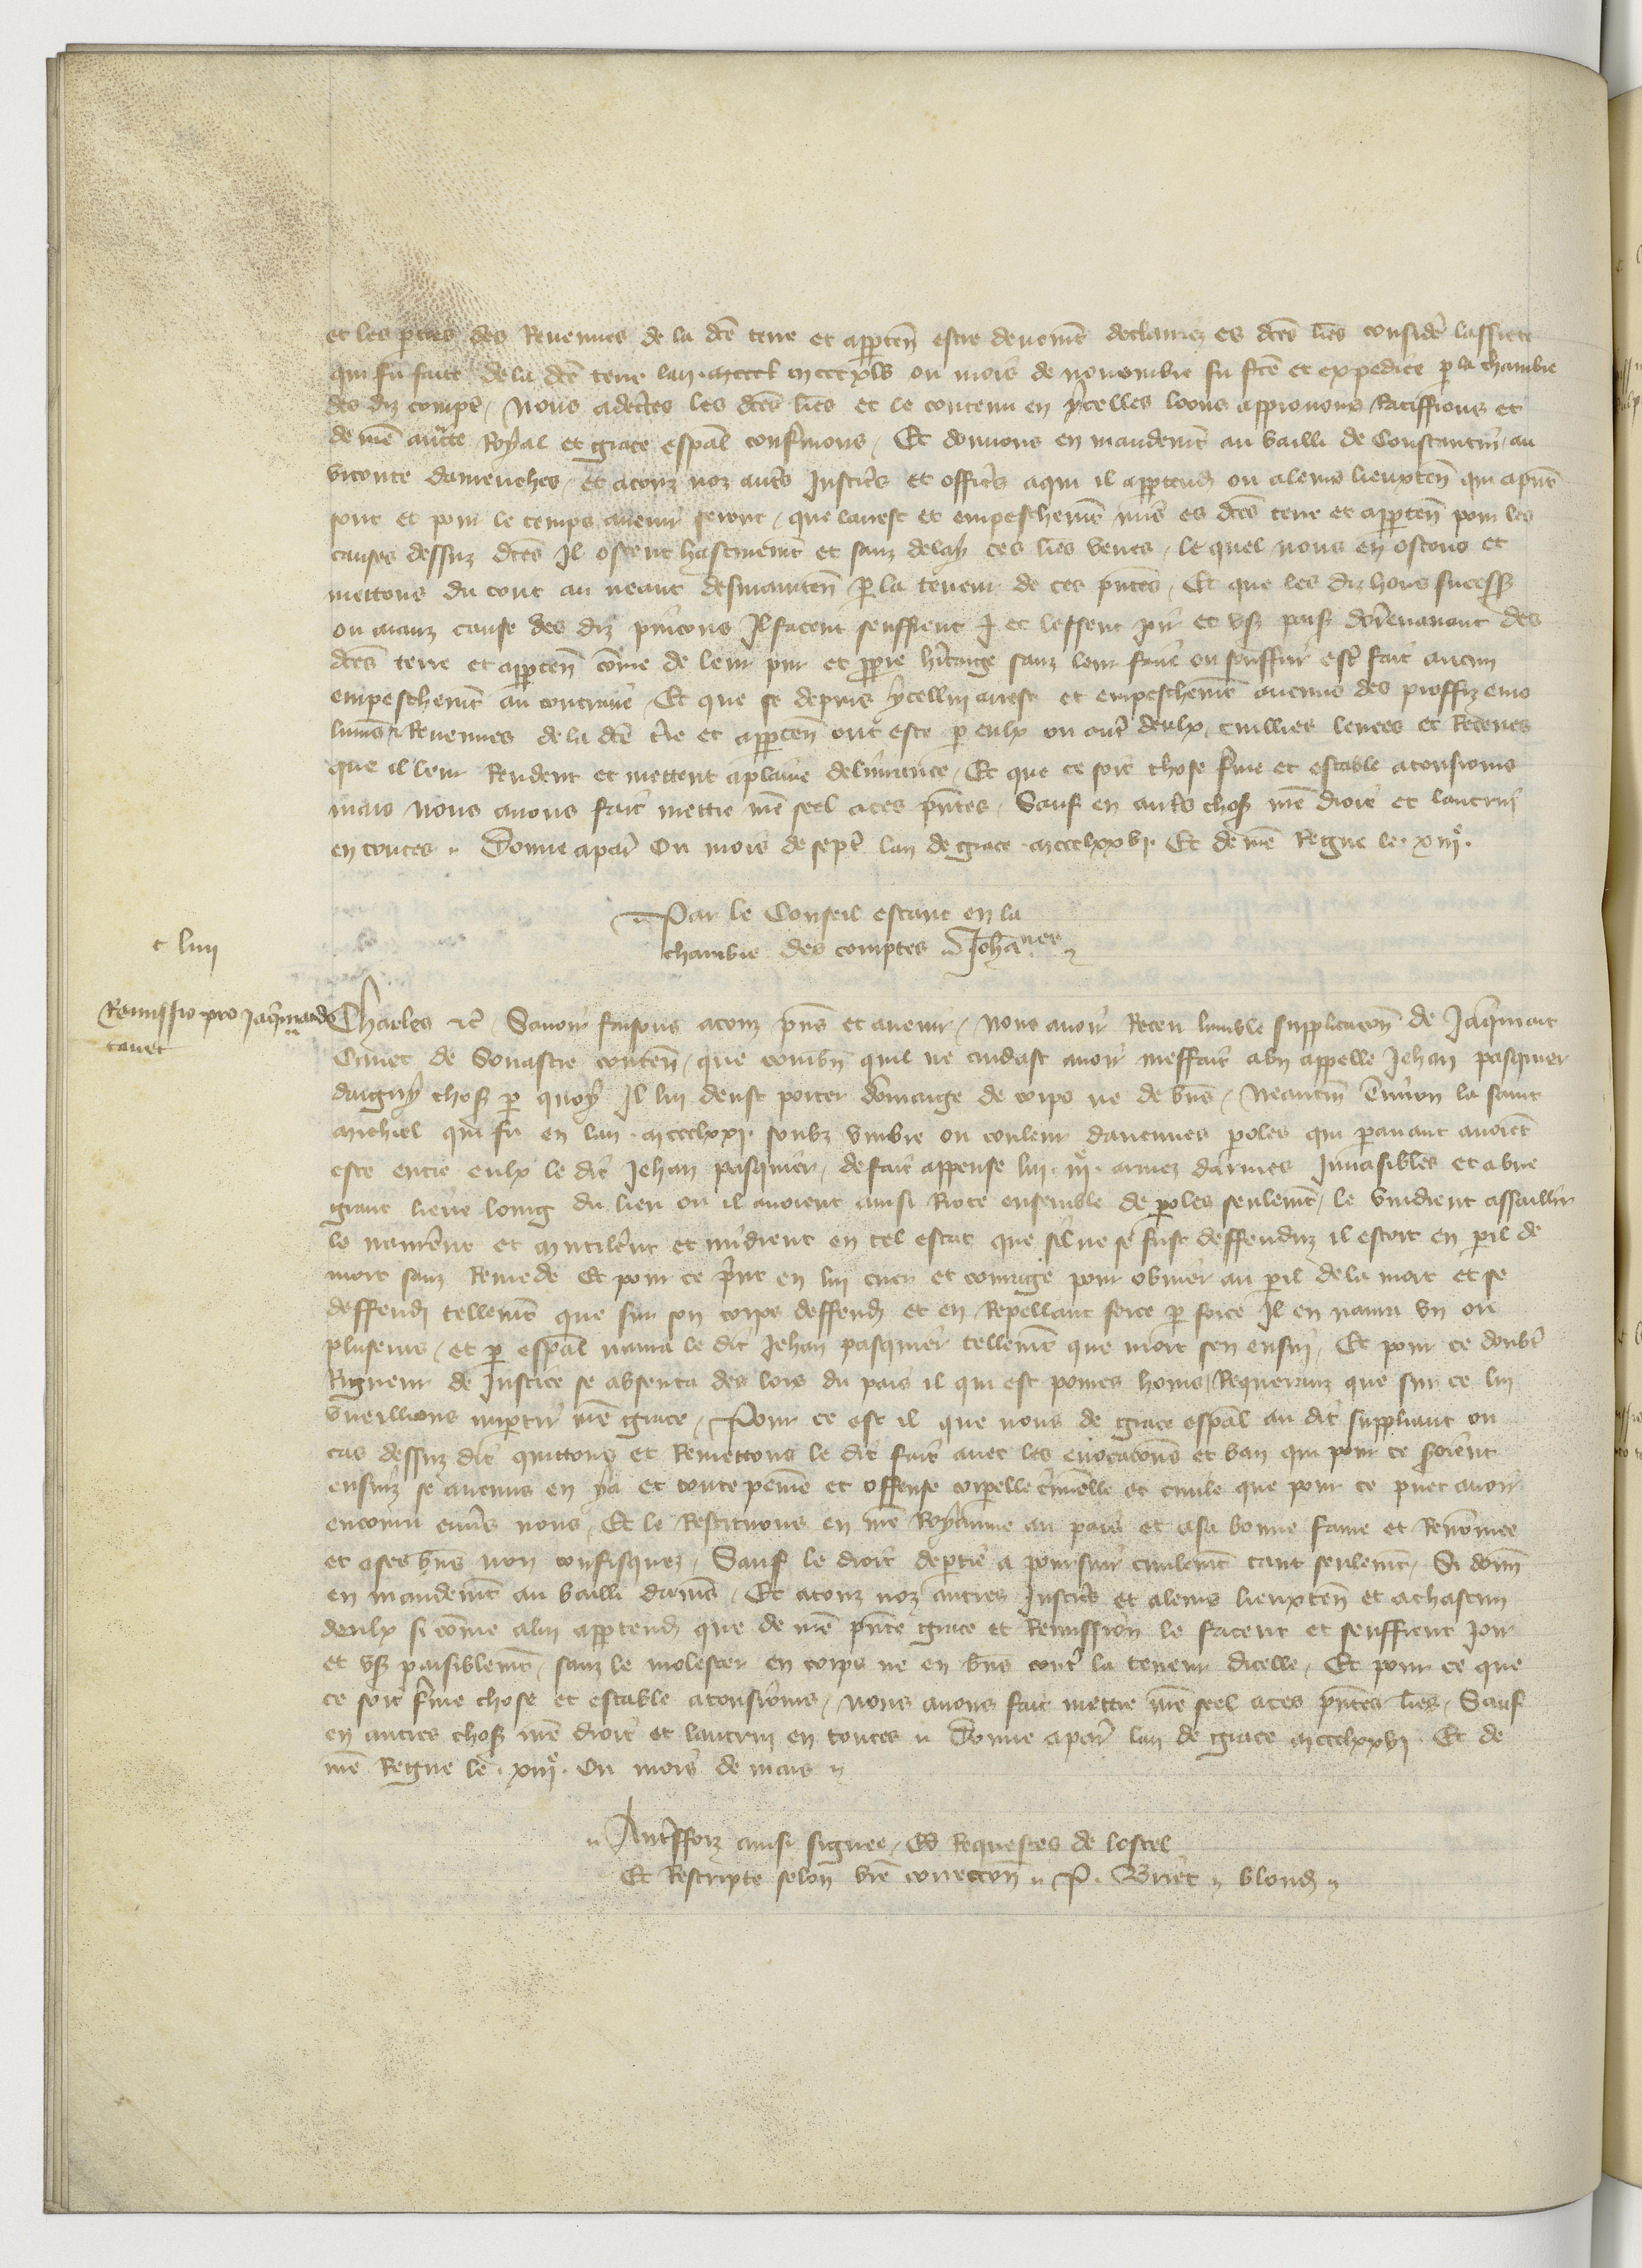 et les parties des Revenues de la dcē terre et appartēn estre devemēt declairiez es dcēs lr̄es considerē lassiete
qui fu faite de la dcē terre lan mcccxlv ou mois de novembre fu fcē et expediee p la chambre
des diz compt̄ / Nous adecertes les dcēs lr̄es et le contenu en ycelles loons approuvons Ratiffions et
de nr̄e auctē Royal et grace esp̄al confermons / Et donnons en mandemēt au bailli de Constantin / au
viconte davrenches / Et a touz noz autr̄s Justic̄rs et offic̄rs a qui il appartend̄ ou a leurs lieuxten̄ qui a pn̄t
sont et pour le temps avenir seront / que larrest et empeschemēt mis es dcēs terre et apparten̄ pour les
causes dessuz dcēs Il ostent hastivemēt et sanz delay ces lr̄es veues / le quel nous en ostons et
mettons du tout au neant desmainten̄ p la teneur de ces pn̄tes / Et que les diz hoirs success̄
ou aianz cause des diz p̄ncons Il facent seuffrent et lessent joir et us̄ pais̄ dorenavant des
dcēs terre et apparten̄ cōme de leur pur et ppre hītaige sanz leur faire ou souffrir estr̄ fait aucun
empeschemēt au contraire / Et que se depuis ycellui arrest et empeschemēt aucuns des proffiz emo
lumēs & Revenues de la dcē tr̄e et apparten̄ ont este p eulx ou autr̄ deulx cuillies levees et Receues
que il leur Rendent et mettent a plaine delivrance / Et que ce soit chose ferme et estable a tousjours
mais Nous avons fait mettre nr̄e seel a ces pn̄tes / Sauf en autr̄s chos̄ nr̄e droit et lautrui
en toutes ¶ Donne a par̄ Ou mois de sept̄ lan de grace mccclxxvi. Et de nr̄e Regne le xiii<sup>e</sup>.
Par le Conseil estant en la
chambre des comptes Johan̄nes
c liiii
Remissio pro Jaqmardo
Canet
Charles &c̄ Savoir faisons a touz pn̄s et avenir / Nous avoir Receu lumble supplicacōn de Jaqmart
Canet de Souastre conten̄ / que combn̄ quil ne cuidast avoir meffait a un appelle Jehan pasquier
daigny chos̄ p quoy Il lui deust porter dōmaige de corps ne de bn̄s / Neantm̄ environ la saint
Michiel qui fu en lan mccclxxi. soubz umbre ou couleur daucunes poles qui pavant avoiēt
este entre eulx le dit Jehan pasquier / de fait appense lui iiii<sup>e</sup>. armez darmes Invasibles et a une
grant lieue loing du lieu ou il avoient ainsi Riote ensemble de poles seulemēt / le vindrent assaillir
le navrerēt et mutilerēt et mirdrent en tel estat que sil ne se fust deffenduz il estoit en peril de
mort sanz Remede Et pour ce prīnt en lui cuer et couraige pour obvier au peril de la mort et se
deffendi tellemēt que sur son corps deffend̄ et en Repellant force p force Il en navra un ou
pluseurs / et p esp̄al navra le dit Jehan pasquier tellemēt que mort sen ensui / Et pour ce doubt̄
Rigueur de Justice se absenta des lors du pais il qui est povres homs / Requeranz que sur ce lui
vueillions impartir nr̄e grace / Pour ce est il que nous de grace esp̄al au dit suppliant ou
cas dessuz dit quittons et Remettons le dit fait avec les evocacōns et ban qui pour ce seroiēt
ensuiz se aucuns en y a et toute peine et offense corpelle cr̄iminelle et civile que pour ce puet avoir
encouru envers nous / Et le Restituons en nr̄e Royaume au pais et a sa bonne fame et Renōmee
et a ses bn̄s non confisquez / Sauf le droit de ptie a poursuir civilemēt tant seulemēt / Si donn̄
en mandemēt au bailli damiēs / Et a touz noz autres Justic̄rs et a leurs lieuxten̄ et a chascun
deulx si cōme a lui appartend̄ que de nr̄e pn̄te grace et Remission le facent et seuffrent Joir
et us̄ paisiblemēt sanz le molester en corps ne en bn̄s contr̄ la teneur dicelle / Et pour ce que
ce soit ferme chose et estable a tousjours / Nous avons fait mettre nr̄e seel a ces pn̄tes lr̄es / Sauf
en autres chos̄ nr̄e droit et lautrui en toutes ¶ Donne a par̄ lan de grace mccclxxvi. Et de
nr̄e Regne le xiii<sup>e</sup>. Ou mois de mars
Autreffoiz ainsi signee / Es Requestes de lostel
Et Rescripte selon vr̄e correccōn P. Briet blond̄